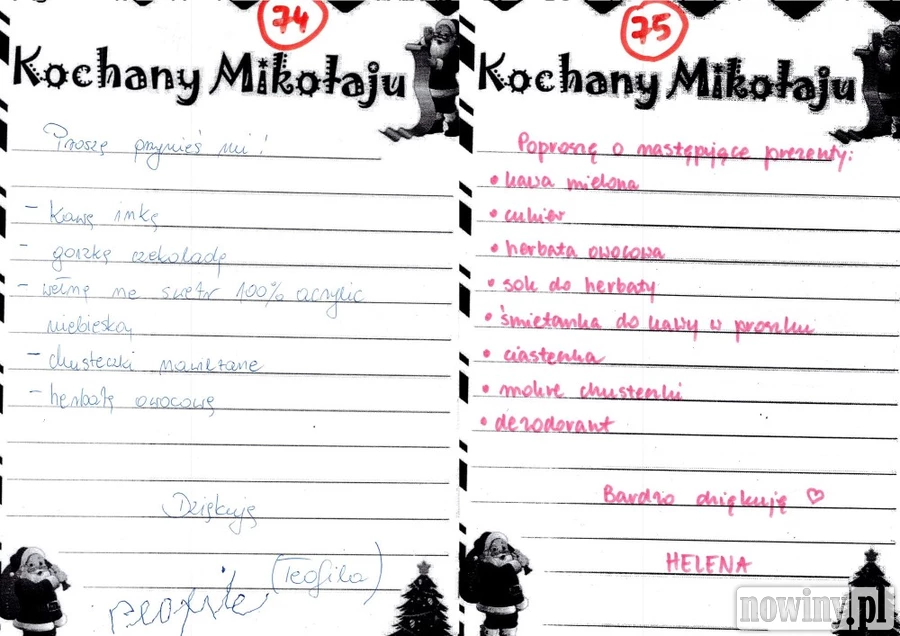 74
Kochany Mikołaju
Proszę przynieś mi!
- Kawę inkę
- gorzką czekoladę
- wełnę na swetr 100% acrylic
niebieską
- chusteczki nawilżane
- herbatę owocową
Dziękuję
(Teofila)
75
Kochany Mikołaju
Poproszę o następujące prezenty:
• kawa mielona
• cukier
• herbata owocowa
• sok do herbaty
• śmietanka do kawy w proszku
• ciasteczka
• mokre chusteczki
• dezodorant
Bardzo dziękuję ♡
HELENA
nowiny.pl